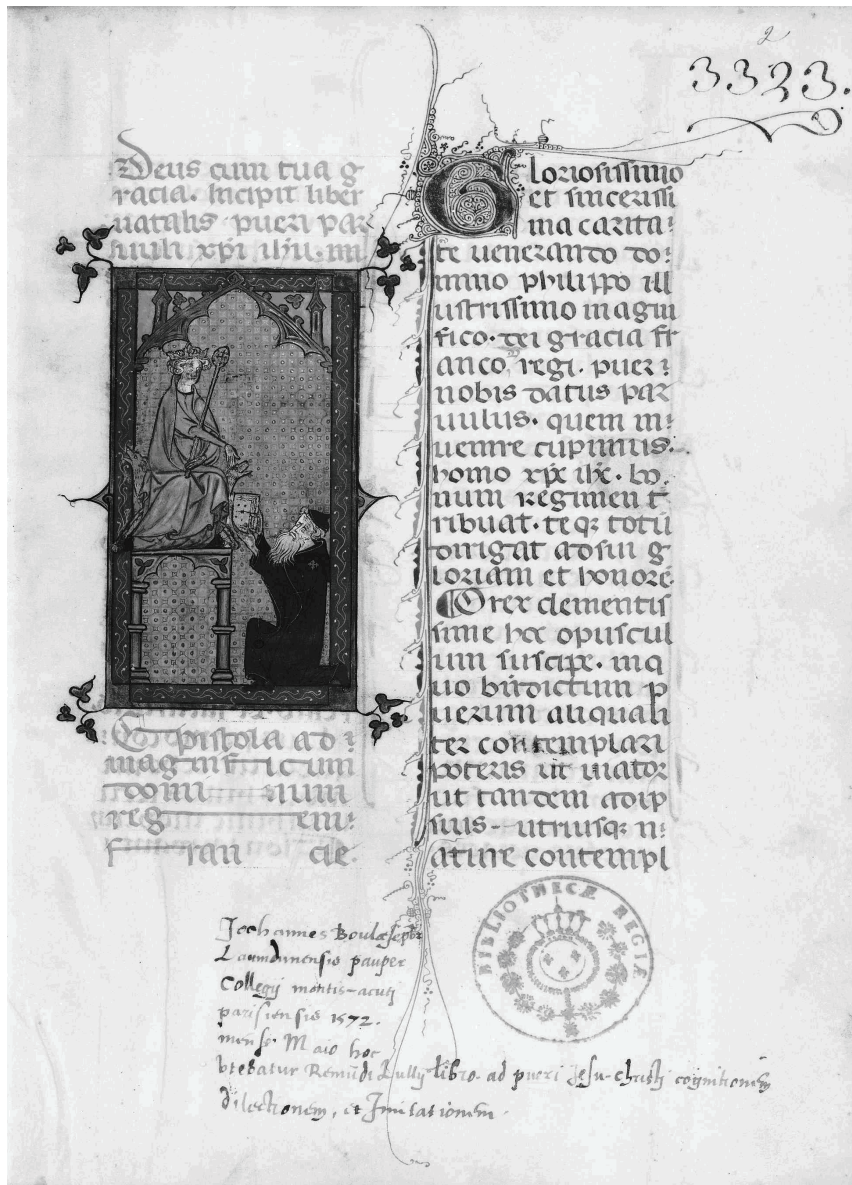 2
3323.
Deus cum tua g
racia. Incipit liber
natalis pueri par
uuli xp̄i ih̄u. mi
Epistola ad
magnificum
domi num
reg em:
f ran cie.
Gloriosissimo
et sincerissi
ma carita-
te uenerando do-
mino philippo ill
ustrissimo magni
fico. dei gracia fr
anco regi. puer
nobis datus par
uulus. quem in-
uenire cupimus.
homo xp̄c ih̄c. bo
num regimen t
ribuat. teqꝫ totū
dirigat ad sui g
loriam et honorē.
O rex clementis
sime hoc opuscul
um suscipe. in q
uo bn̄dictum p
uerum aliquali
ter contemplari
poteris ut uiator
ut tandem adip
suis- utriusqꝫ n-
ature contempl
Joehannes Boulæse pb̄r
Laudunensis pauper
Collegij montis-acuti
parisiensis 1572.
mense Maio hoc
vtebatur Remūdi Lullij libro. ad pueri Jesu-christi cognitionem
dilectionem, et Jmitationem.
BIBLIOTHECÆ REGIÆ